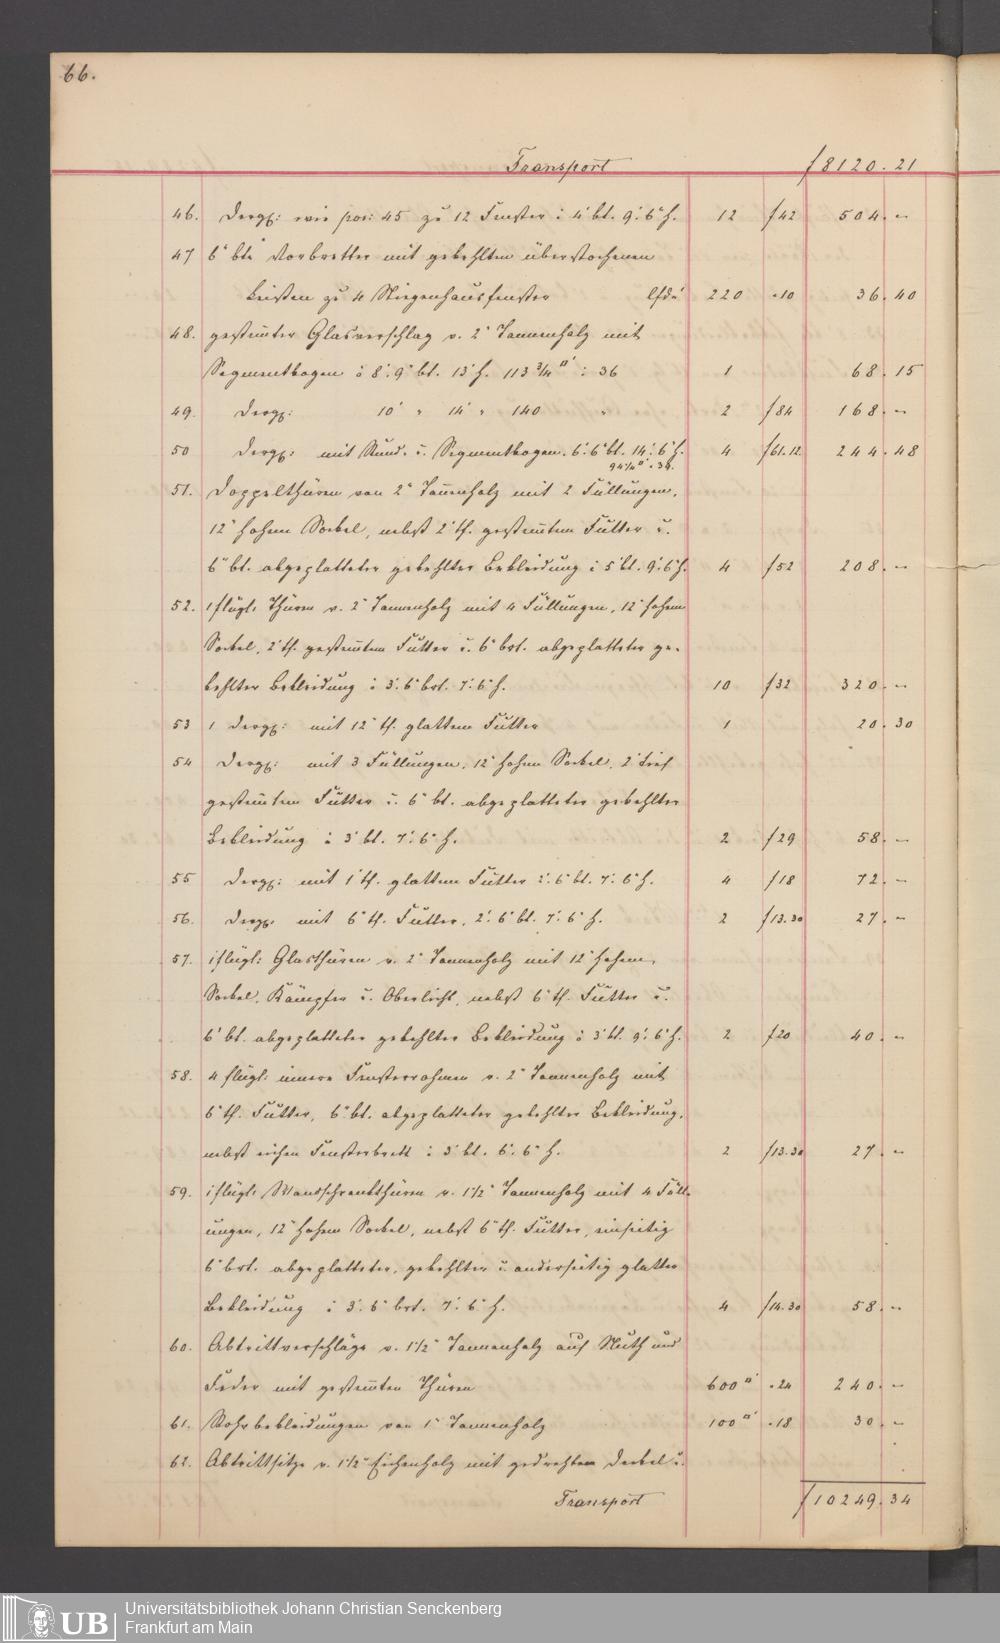 66.
Transport f 8120. 21
46. Dergl: wie pos: 45 zu 12 Fenster à 4' bt. 9'. 6" h. 12 f 42 504. –
47 6" bte Vorbretter mit gekehlten überstochenen
Leisten zu 4 Stiegenhausfenster lfd' 220 " 10 36. 40
48. gestemmter Glasverschlag v. 2" Tannenholz mit
Segmentbogen à 8'. 9" bt. 13' h. 113 3/4 □' à 36 1 68. 15
49. Dergl: 10' " 14' " 140 " 2 f 84 168. –
50 Dergl: mit Rund- u. Segmentbogen. 6'. 6" bt. 14'. 6" h. 4 f 61. 12 244. 48
94 1/4 □' . 39.
51. Doppelthüren von 2" Tannenholz mit 2 Füllungen,
12" hohem Sockel, nebst 2' tf. gestemmtem Futter u.
6" bt. abgeplatteter gekehlter Bekleidung à 5' bt. 9'. 6" h. 4 f 52 208. –
52. 1 flügl. Thüren v. 2" Tannenholz mit 4 Füllungen, 12" hohem
Sockel, 2' tf. gestemmtem Futter u. 6" brt. abgeplatteter ge-
kehlter Bekleidung à 3'. 6" brt. 7'. 6" h. 10 f 32 320. –
53 1 Dergl: mit 12" tf. glattem Futter 1 20. 30
54 Dergl: mit 3 Füllungen, 12" hohem Sockel, 2' tief
gestemmtem Futter u. 6" bt. abgeplatteter gekehlter
Bekleidung à 3' bt. 7'. 6" h. 2 f 29 58. –
55 Dergl: mit 1' tf. glattem Futter 2'. 6" bt. 7'. 6" h. 4 f 18 72. –
56. Dergl. mit 6" tf. Futter, 2'. 6" bt. 7'. 6" h. 2 f 13. 30 27. –
57. 1 flügl: Glasthüren v. 2" Tannenholz mit 12" hohem
Sockel, Kämpfer u. Oberlicht, nebst 6" tf. Futter u.
6" bt. abgeplatteter gekehlter Bekleidung à 3' bt. 9'. 6" h. 2 f 20 40. –
58. 4 flügl: innere Fensterrahmen v. 2" Tannenholz mit
6" tf. Futter, 6" bt. abgeplatteter gekehlter Bekleidung,
nebst eichen Fensterbrett à 3' bt. 6'. 6" h. 2 f 13. 30 27. –
59. 1 flügl. Wandschrankthüren v. 1 1/2" Tannenholz mit 4 Füll-
ungen, 12" hohem Sockel, nebst 6" tf. Futter, einseitig
6" brt. abgeplatteter, gekehlter u. anderseitig glatter
Bekleidung à 3'. 6" brt. 7'. 6" h. 4 f 14. 30 58. –
60. Abtrittverschläge v. 1 1/2" Tannenholz auf Nuth und
Feder mit gestemmten Thüren 600 □' " 24 240. –
61. Rohrbekleidungen von 1" Tannenholz 100 □' " 18 30. –
62. Abtrittsitze v. 1 1/2" Eichenholz mit gedrehtem Deckel u.
Transport f 10249. 34
UB
Universitätsbibliothek Johann Christian Senckenberg
Frankfurt am Main